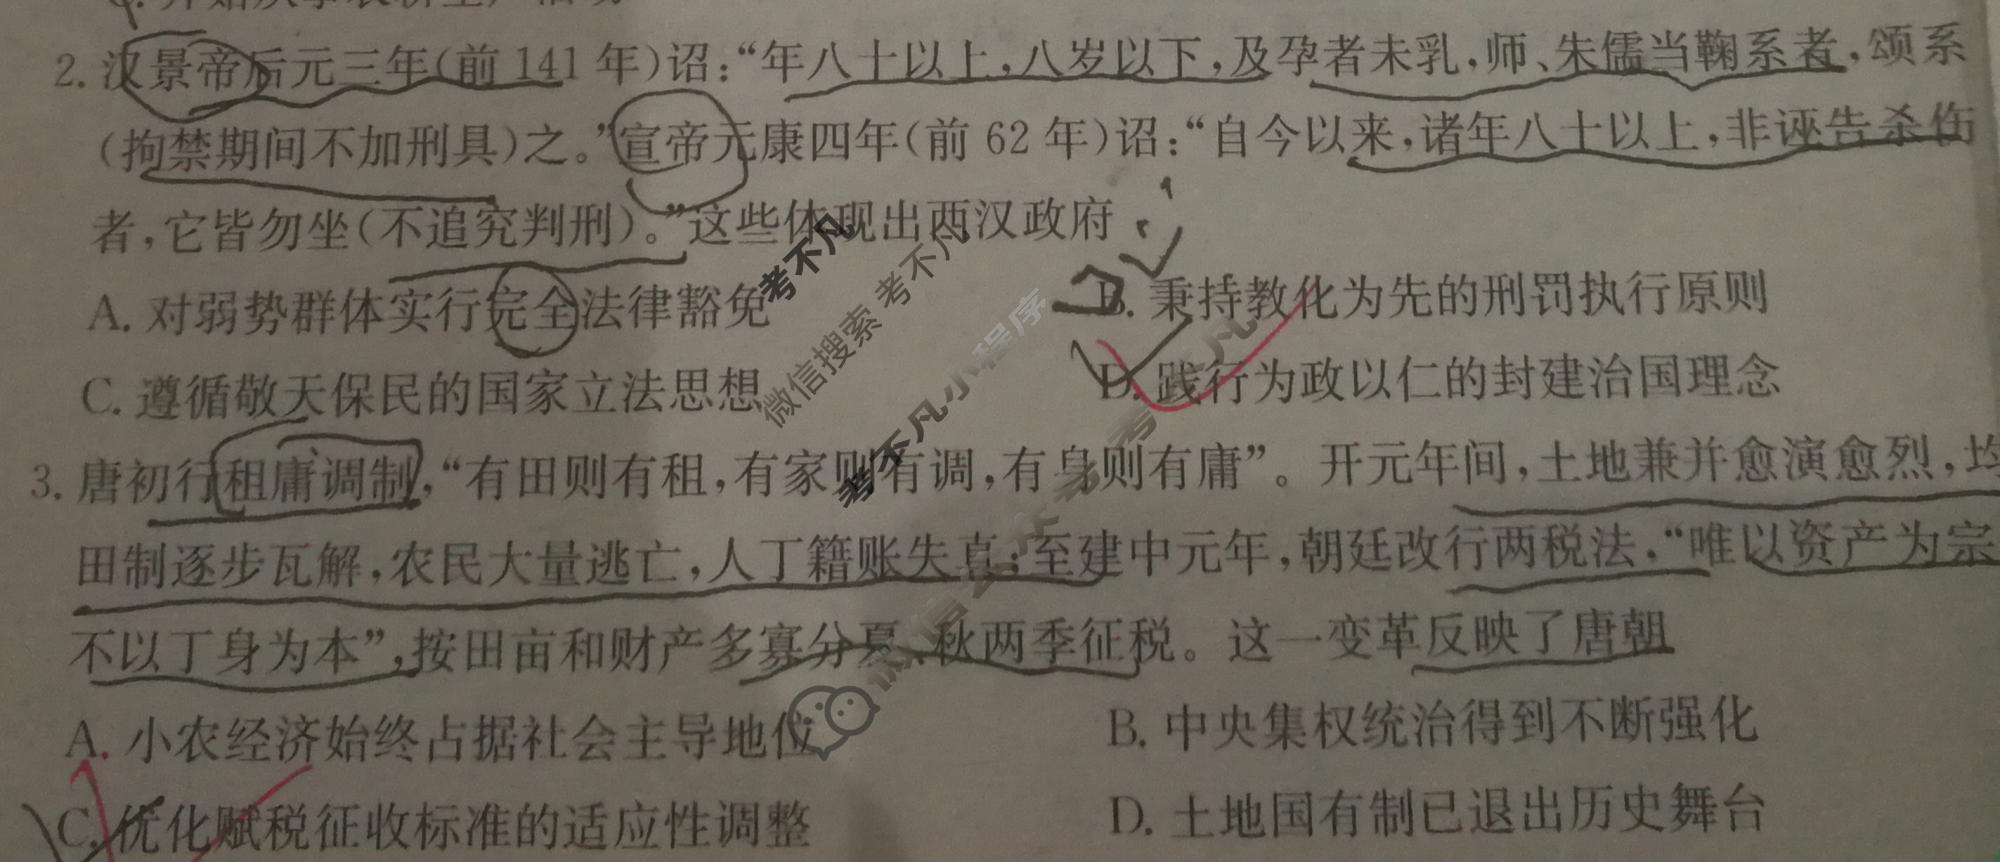 2. 汉景帝后元三年(前 141 年)诏:“年八十以上,八岁以下,及孕者未乳,师、朱儒当鞠系者,颂系
(拘禁期间不加刑具)之。”宣帝元康四年(前 62 年)诏:“自今以来,诸年八十以上,非诬告杀伤
者,它皆勿坐(不追究判刑)。”这些体现出两汉政府
A. 对弱势群体实行完全法律豁免
B. 秉持教化为先的刑罚执行原则
C. 遵循敬天保民的国家立法思想
D. 践行为政以仁的封建治国理念
3. 唐初行租庸调制,“有田则有租,有家则有调,有身则有庸”。开元年间,土地兼并愈演愈烈,均
田制逐步瓦解,农民大量逃亡,人丁籍账失真;至建中元年,朝廷改行两税法,“唯以资产为宗
不以丁身为本”,按田亩和财产多寡分夏、秋两季征税。这一变革反映了唐朝
A. 小农经济始终占据社会主导地位
B. 中央集权统治得到不断强化
C. 优化赋税征收标准的适应性调整
D. 土地国有制已退出历史舞台
考不凡
微信搜索 考不凡
考不凡小程序
微信公众号 考不凡